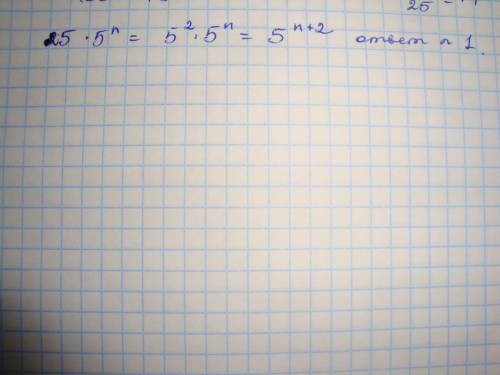 25
25 · 5ⁿ = 5² · 5ⁿ = 5ⁿ⁺² ответ n 1.